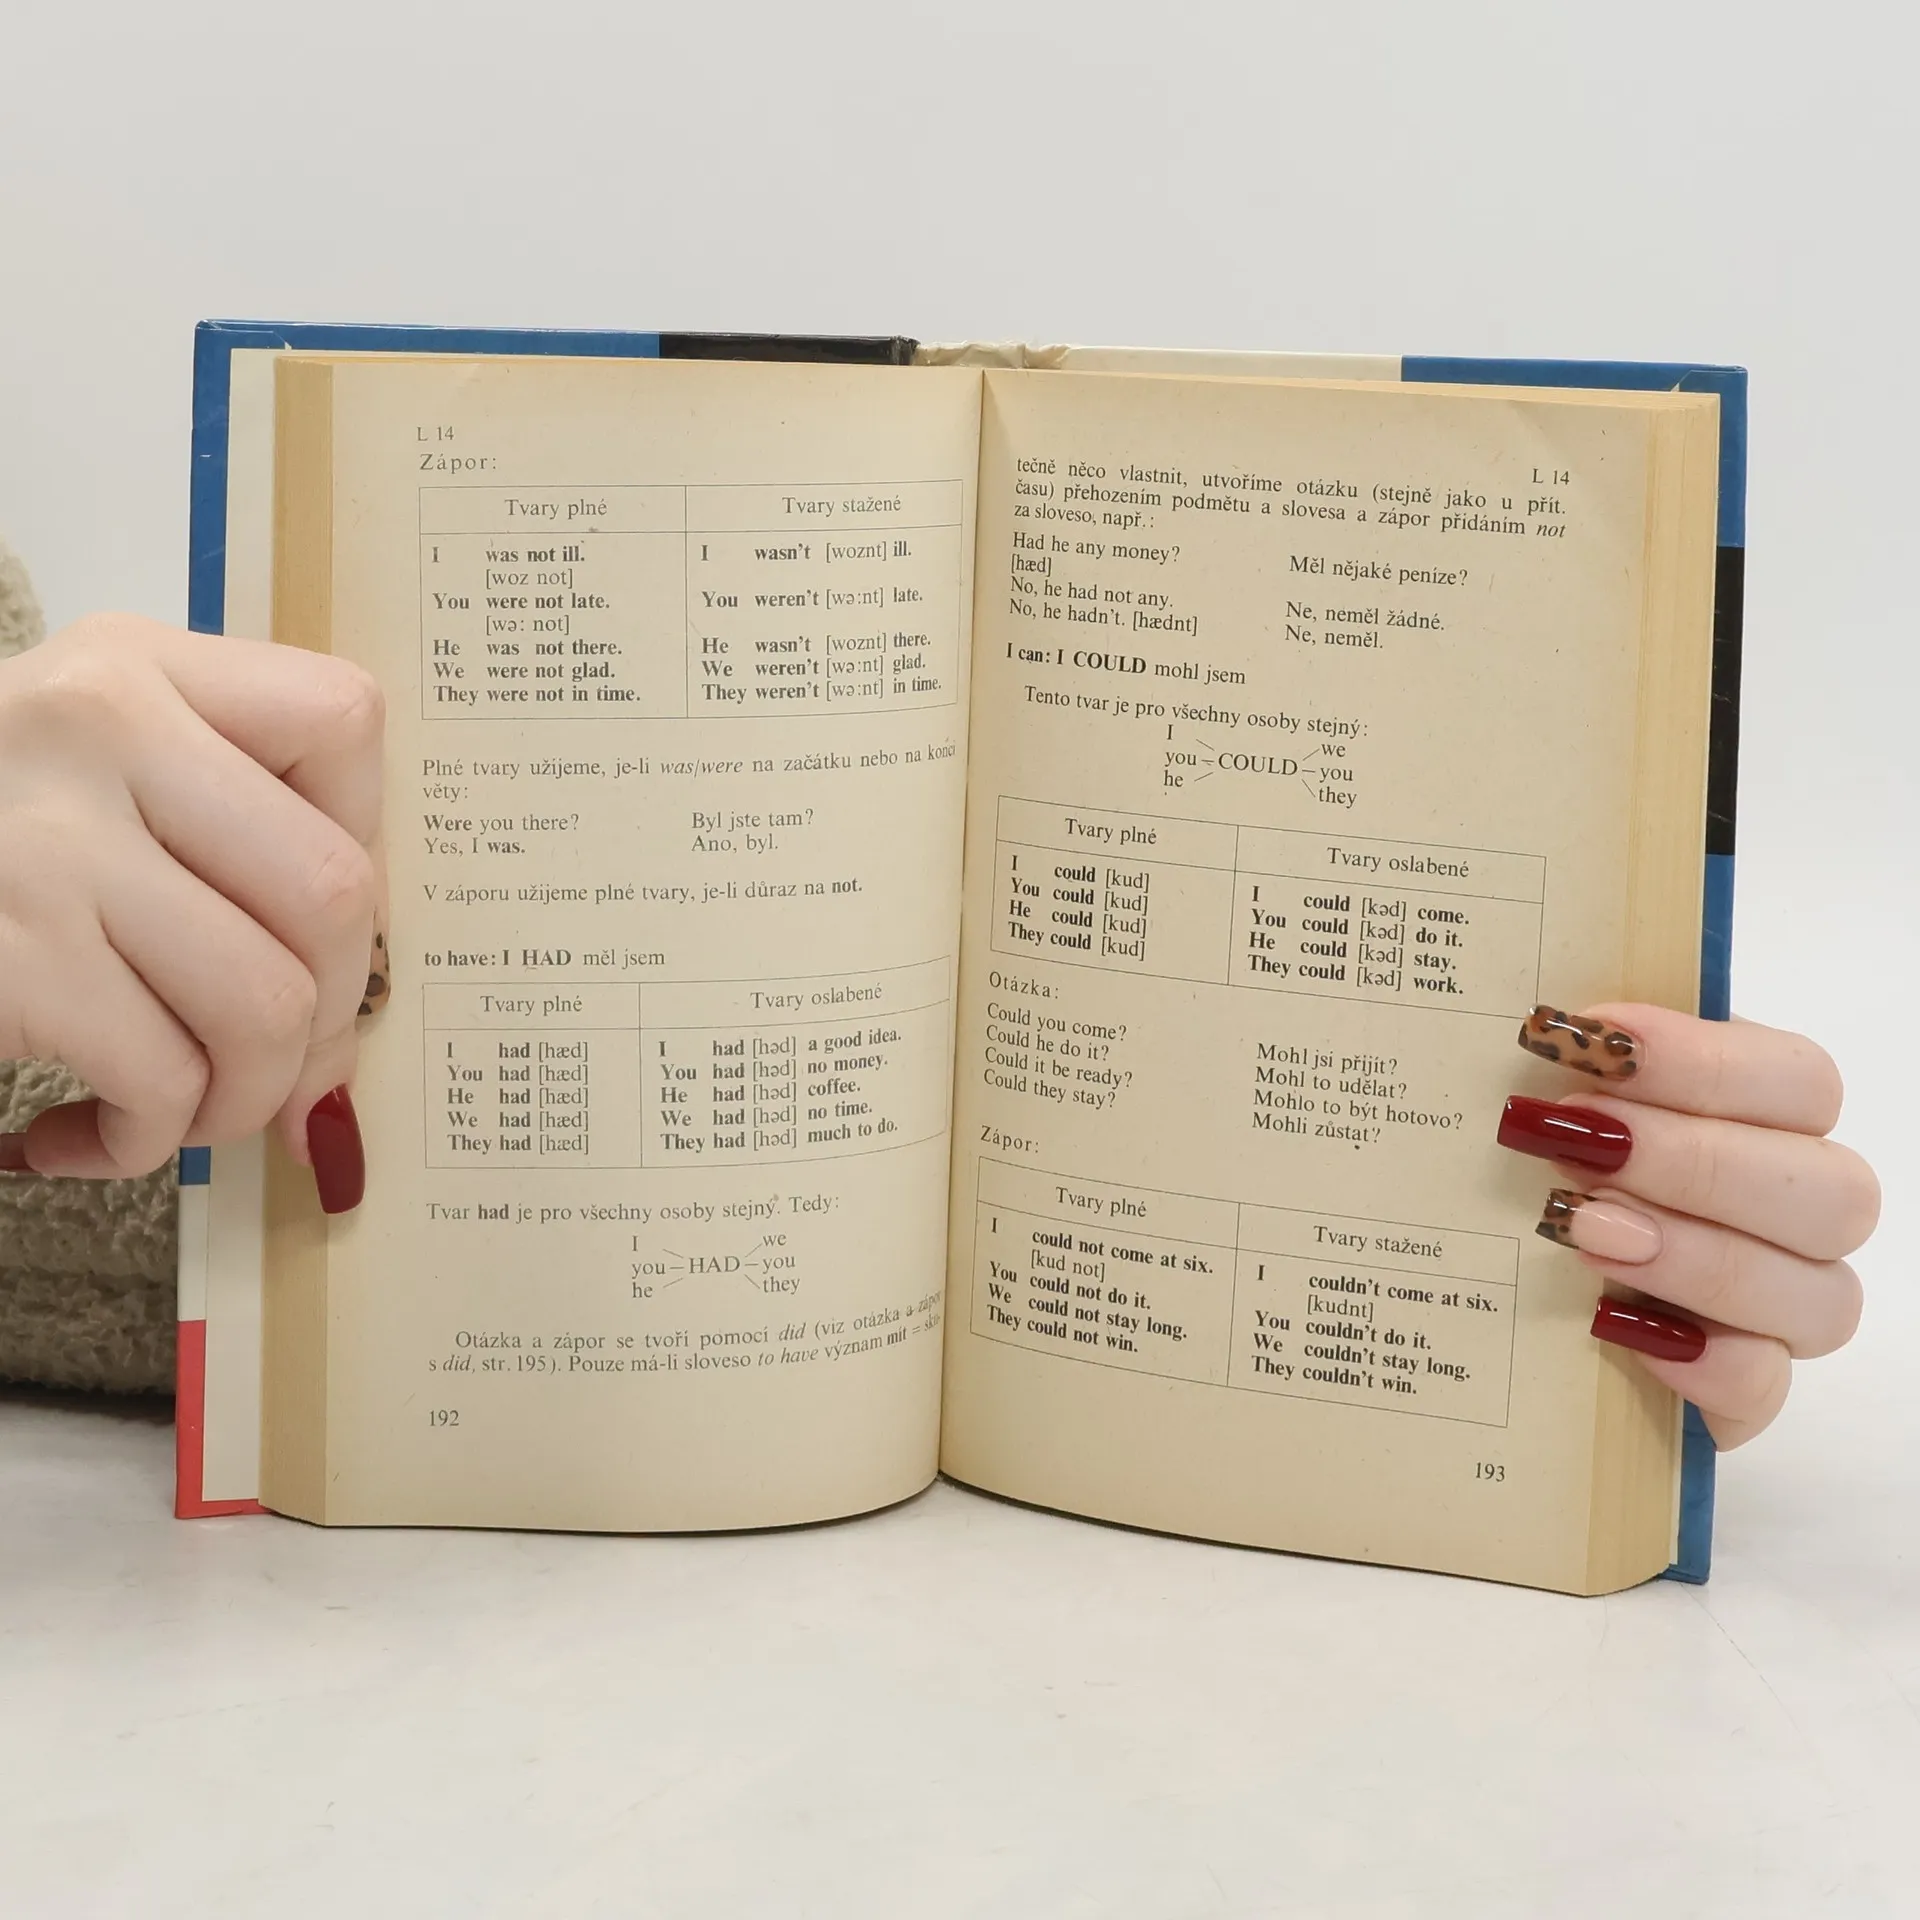 L 14
Zápor:
Tvary plné Tvary stažené
I was not ill. I wasn't [woznt] ill.
[woz not]
You were not late. You weren't [wə:nt] late.
[wə: not]
He was not there. He wasn't [woznt] there.
We were not glad. We weren't [wə:nt] glad.
They were not in time. They weren't [wə:nt] in time.
Plné tvary užijeme, je-li was/were na začátku nebo na konci
věty:
Were you there? Byl jste tam?
Yes, I was. Ano, byl.
V záporu užijeme plné tvary, je-li důraz na not.
to have: I HAD měl jsem
Tvary plné Tvary oslabené
I had [hæd] I had [həd] a good idea.
You had [hæd] You had [həd] no money.
He had [hæd] He had [həd] coffee.
We had [hæd] We had [həd] no time.
They had [hæd] They had [həd] much to do.
Tvar had je pro všechny osoby stejný. Tedy:
I we
you – HAD – you
he they
Otázka a zápor se tvoří pomocí did (viz otázka a zápor
s did, str. 195). Pouze má-li sloveso to have význam mít = sku-
192
L 14
tečně něco vlastnit, utvoříme otázku (stejně jako u přít.
času) přehozením podmětu a slovesa a zápor přidáním not
za sloveso, např.:
Had he any money? Měl nějaké peníze?
[hæd]
No, he had not any. Ne, neměl žádné.
No, he hadn't. [hædnt] Ne, neměl.
I can: I COULD mohl jsem
Tento tvar je pro všechny osoby stejný:
I we
you – COULD – you
he they
Tvary plné Tvary oslabené
I could [kud] I could [kəd] come.
You could [kud] You could [kəd] do it.
He could [kud] He could [kəd] stay.
They could [kud] They could [kəd] work.
Otázka:
Could you come? Mohl jsi přijít?
Could he do it? Mohl to udělat?
Could it be ready? Mohlo to být hotovo?
Could they stay? Mohli zůstat?
Zápor:
Tvary plné Tvary stažené
I could not come at six. I couldn't come at six.
[kud not] [kudnt]
You could not do it. You couldn't do it.
We could not stay long. We couldn't stay long.
They could not win. They couldn't win.
193